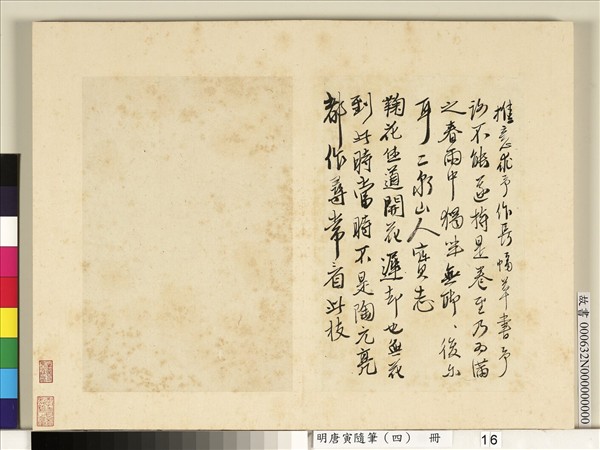 意欲予作長幅草書予
不能遂持是卷至乃為滿
之春雨中獨坐無聊、復尔
耳二泉山人寶志
鞠花任道開花遲却也無花
到此時當時不是陶元亮
都作尋常看此枝
故書 000632N000000000
明唐寅隨筆(四) 冊 16